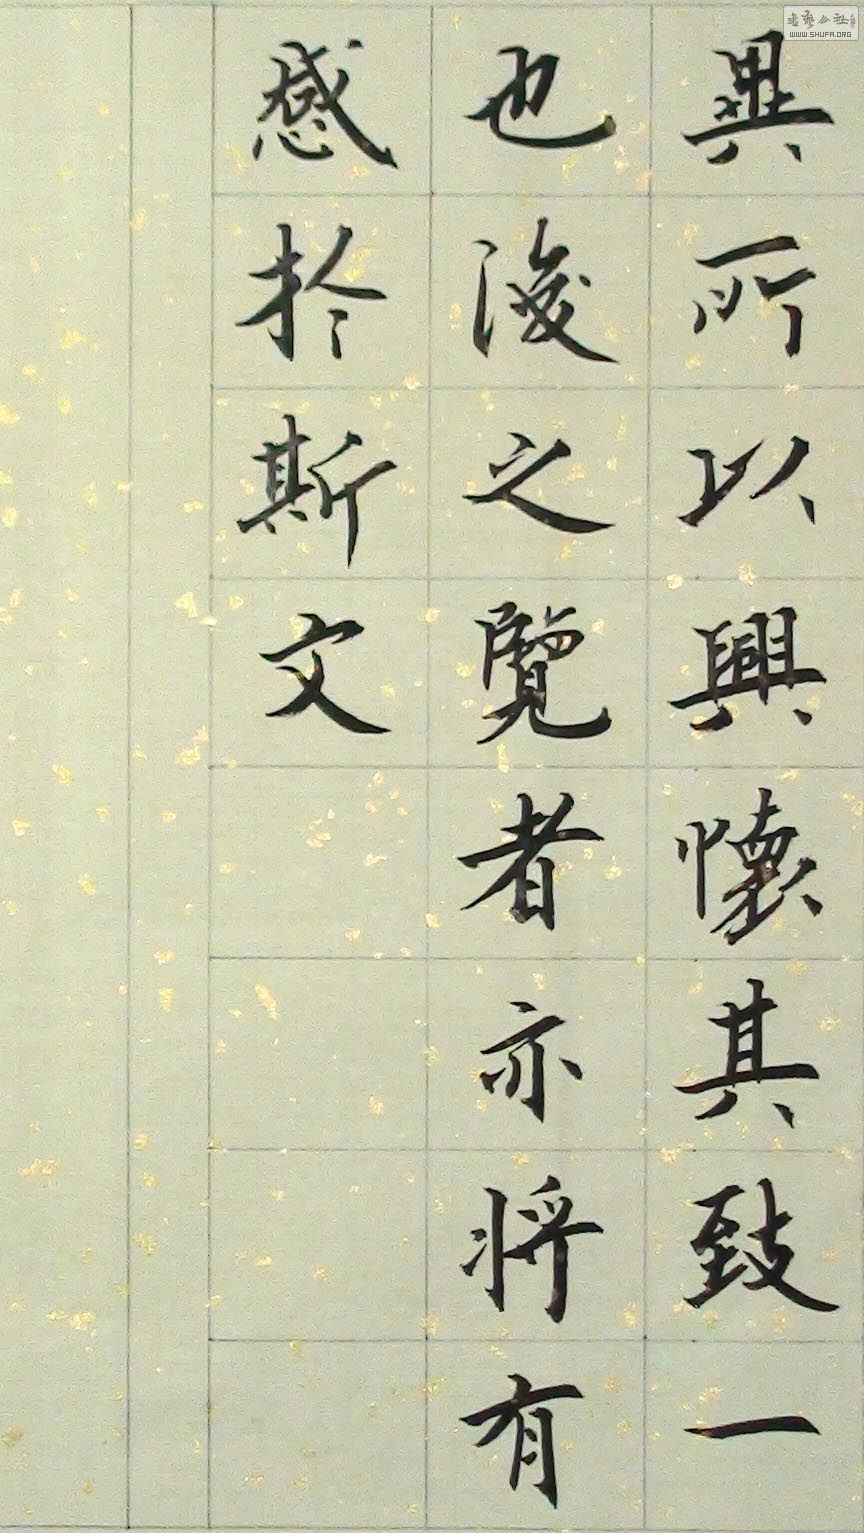 異所以興懷其致一
也後之覽者亦將有
感於斯文
WWW.SHUFA.ORG